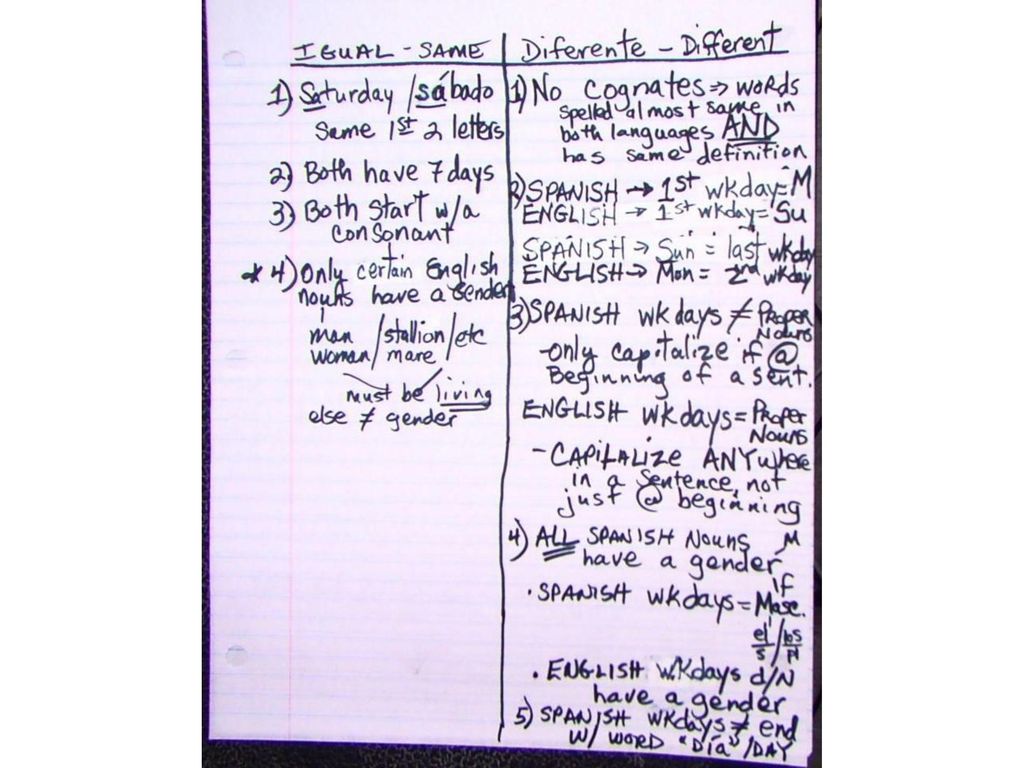 IGUAL - SAME
1) Saturday / sábado
Same 1st 2 letters
2) Both have 7 days
3) Both Start w/a
consonant
* 4) Only certain English
nouns have a gender
man / stallion / etc
woman / mare
must be living
else ≠ gender
Diferente - Different
1) No cognates ⇒ words
spelled almost same in
both languages AND
has same definition
2) SPANISH → 1st wkday = M
ENGLISH → 1st wkday = Su
SPANISH → Sun = last wkday
ENGLISH → Mon = 2nd wkday
3) SPANISH wkdays ≠ Proper
Nouns
- Only capitalize if @
Beginning of a sent.
ENGLISH wkdays = Proper
Nouns
- CAPITALIZE ANYwhere
in a sentence, not
just @ beginning
4) ALL SPANISH Nouns M
have a gender /F
• SPANISH wkdays = Masc.
el / los
s / pl
• ENGLISH wkdays d/N
have a gender
5) SPANISH wkdays ≠ end
w/ WORD "Día" / DAY